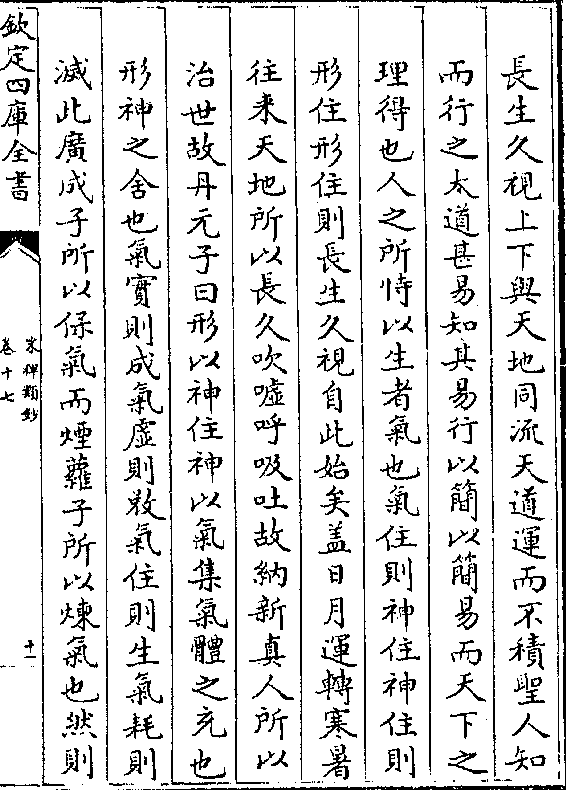 長生久視上下與天地同流天道運而不積聖人知
而行之太道甚易知其易行以簡以簡易而天下之
理得也人之所恃以生者氣也氣住則神住神住則
形住形住則長生久視自此始矣盖日月運轉寒暑
往来天地所以長久吹噓呼吸吐故納新真人所以
治世故丹元子曰形以神住神以氣集氣體之充也
形神之舍也氣實則成氣虚則敗氣住則生氣耗則
滅此廣成子所以保氣而煙蘿子所以煉氣也然則
欽定四庫全書
宋稗類鈔
卷十七
十一